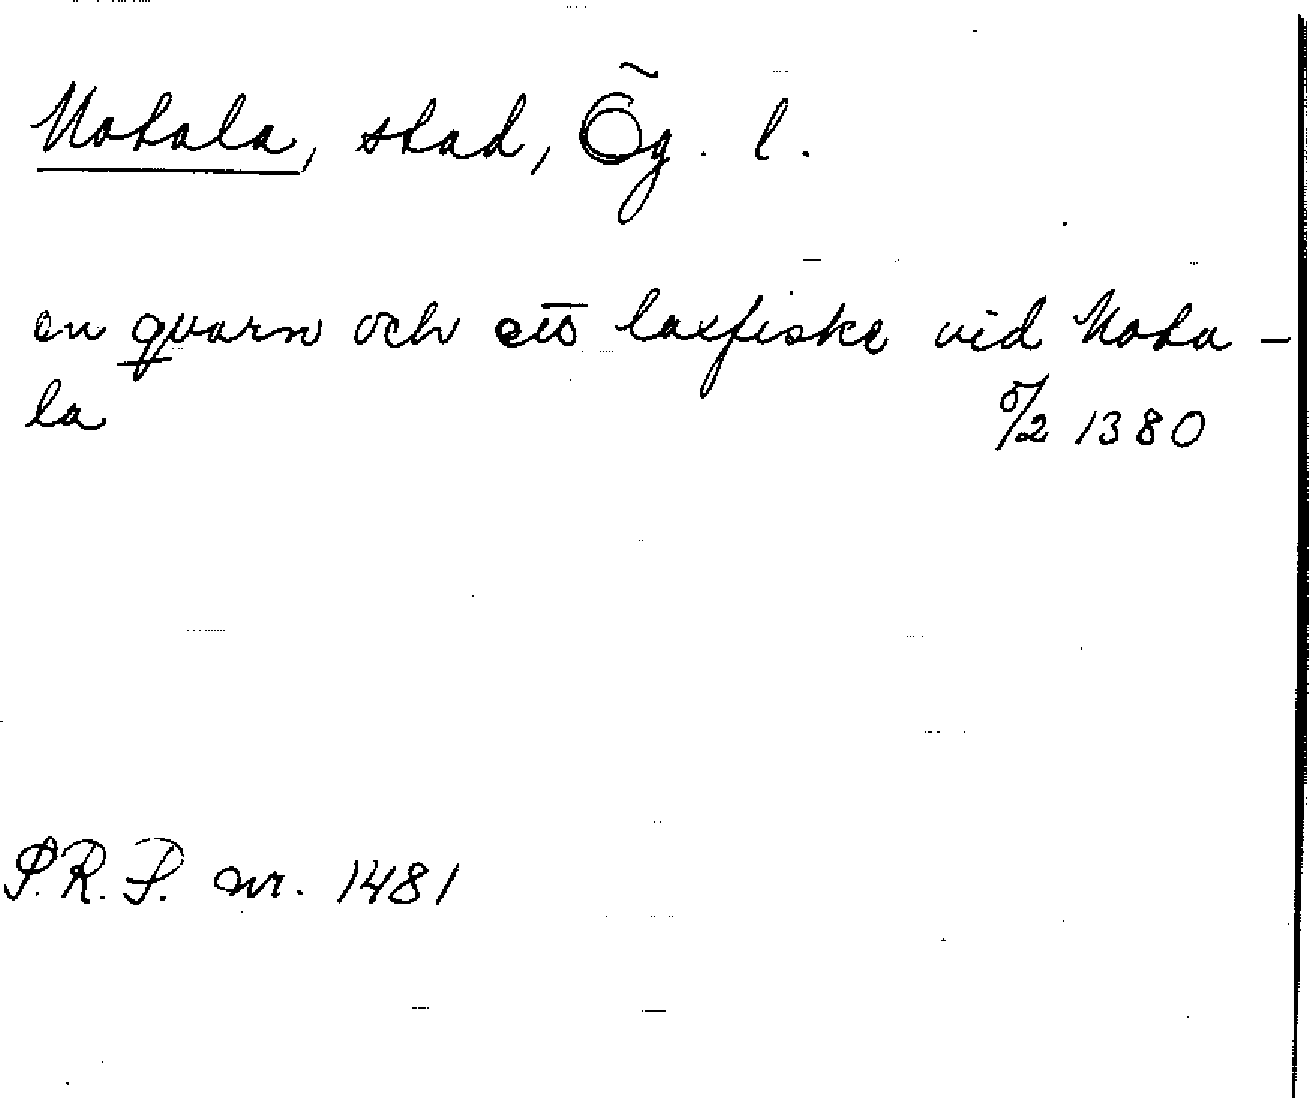 Motala, stad, Ög. l.
en qvarn och ett laxfiske vid Mota-
la 5/2 1380
P.R.P. nr. 1481